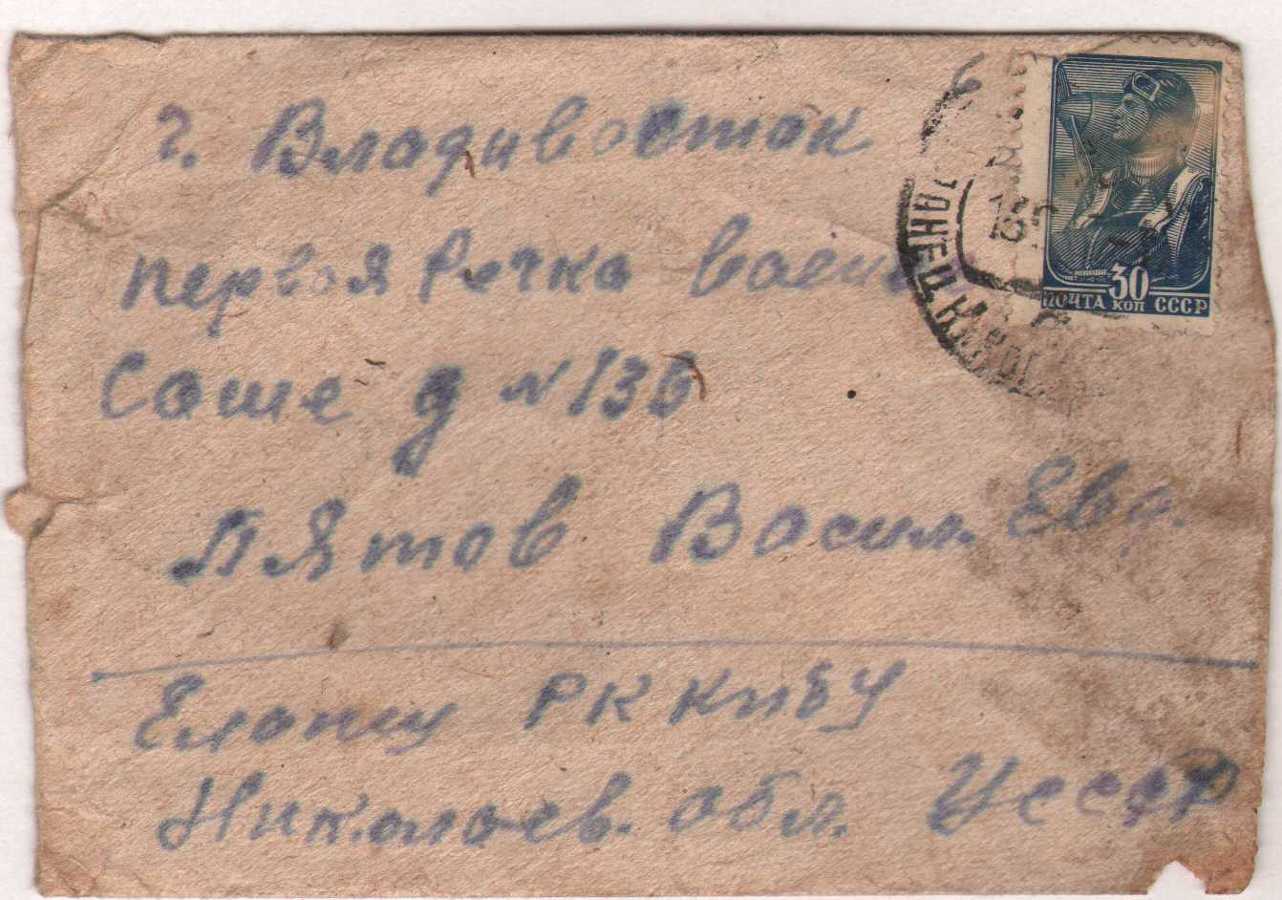 г. Владивосток
первая Речка воен
Соше д N 136
Пятов Васил. Евд.
Еланец РК КП(б)У
Николаев. обл. УССР
30
ПОЧТА КОП СССР